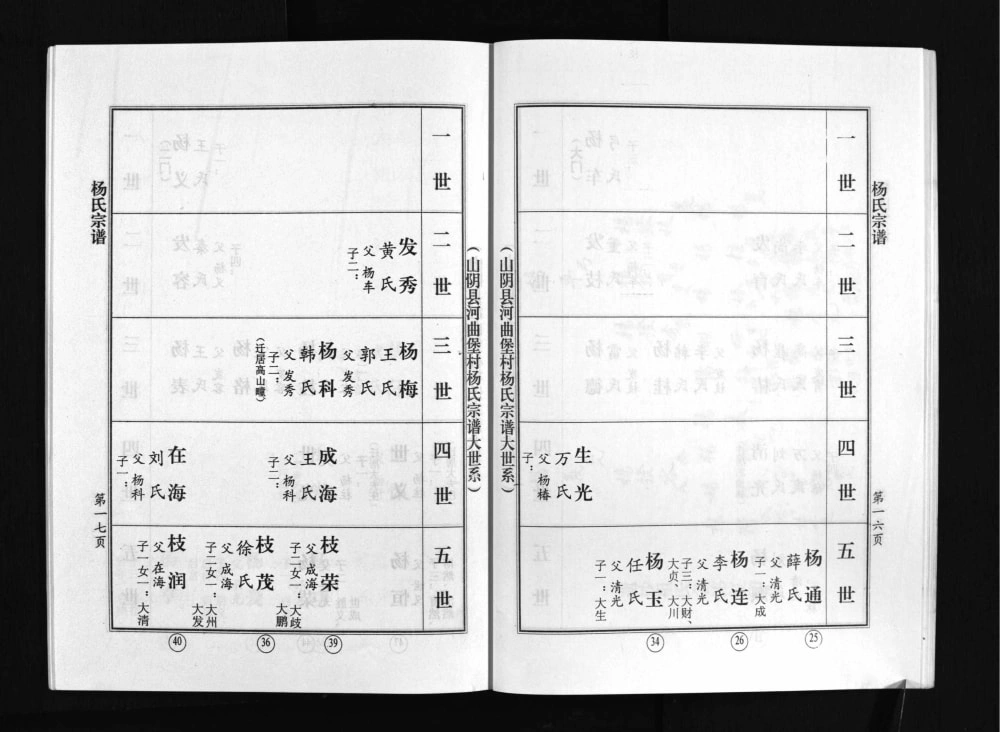 杨氏宗谱
第一六页
一世
二世
三世
四世
生光
万氏
父 杨椿
子：
五世
杨通
薛氏
父 清光
子一：大成
杨连
李氏
父 清光
子三：大财、
大贞、大川
杨玉
任氏
父 清光
子一：大生
25
26
34
（山阴县河曲堡村杨氏宗谱大世系）
（山阴县河曲堡村杨氏宗谱大世系）
一世
二世
发秀
黄氏
父 杨车
子二：
三世
杨梅
王氏
郭氏
父 发秀
杨科
韩氏
父 发秀
子二：
四世
成海
王氏
父 杨科
子二：
在海
刘氏
父 杨科
子一：
五世
枝荣
父 成海
子二女一：大歧
大鹏
枝茂
徐氏
父 成海
子二女一：大州
大发
枝润
父 在海
子一女一：大清
39
36
40
杨氏宗谱
第一七页